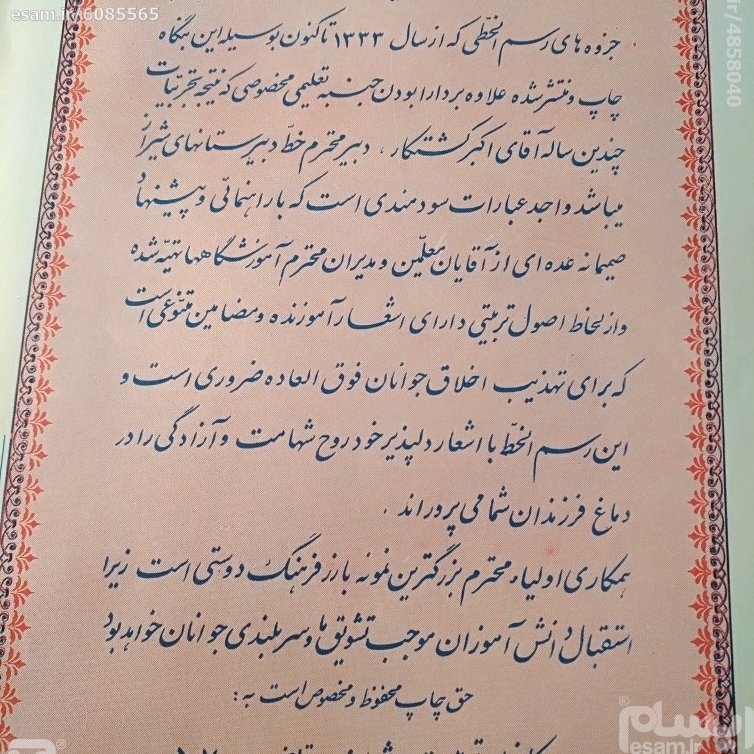 esam.ir/6085565
ir/4858040
جزوه های رسم الخطی که از سال ۱۳۳۳ تاکنون بوسیله این بنگاه
چاپ و منتشر شده علاوه بر دارا بودن جنبه تعلیمی مخصوصی که نتیجه تجربیات
چندین ساله آقای اکبر کشتکار ، دبیر محترم خطّ دبیرستانهای شیراز
میباشد واجد عبارات سودمندی است که با راهنمائی و پیشنهاد
صمیمانه عده ای از آقایان معلّمین و مدیران محترم آموزشگاهها تهیّه شده
و از لحاظ اصول تربیتی دارای اشعار آموزنده و مضامین متنوّعی است
که برای تهذیب اخلاق جوانان فوق العاده ضروری است و
این رسم الخطّ با اشعار دلپذیر خود روح شهامت و آزادگی را در
دماغ فرزندان شما می پروراند .
همکاری اولیاء محترم بزرگترین نمونه بارز فرهنگ دوستی است زیرا
استقبال دانش آموزان موجب تشویق ما و سربلندی جوانان خواهد بود
حق چاپ محفوظ و مخصوص است به :
ایسام
esam.ir